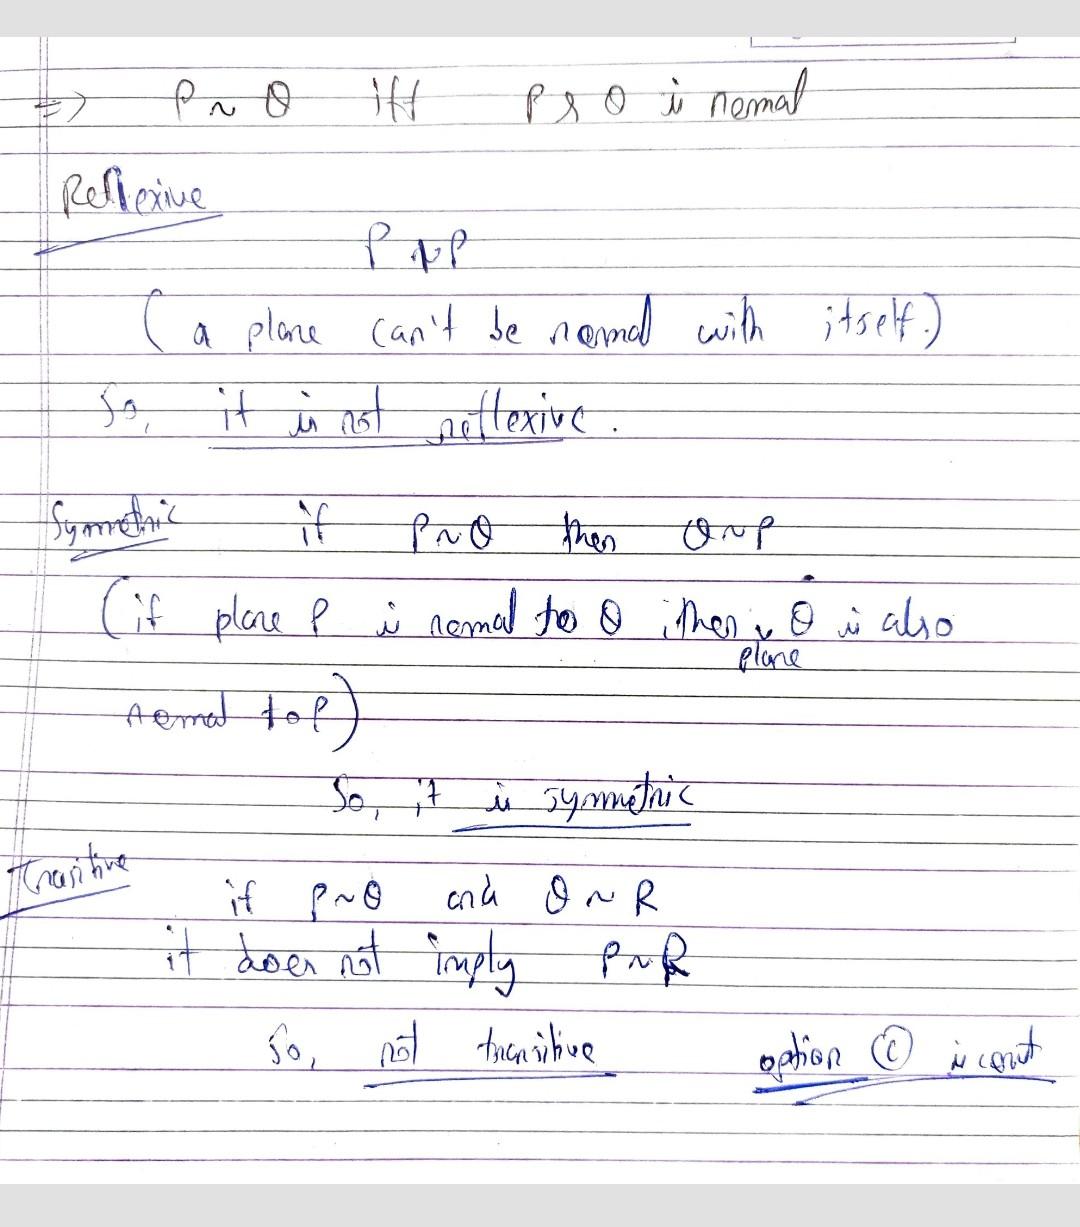 => P ~ Q iff P & Q is normal
Reflexive
P ≁ P
( a plane can't be normal with itself.)
So, it is not reflexive.
Symmetric if P ~ Q then Q ~ P
( if plane P is normal to Q , then Q is also
plane
normal to P )
So, it is symmetric
Transitive
if P ~ Q and Q ~ R
it does not imply P ~ R
So, not transitive option (C) is corret